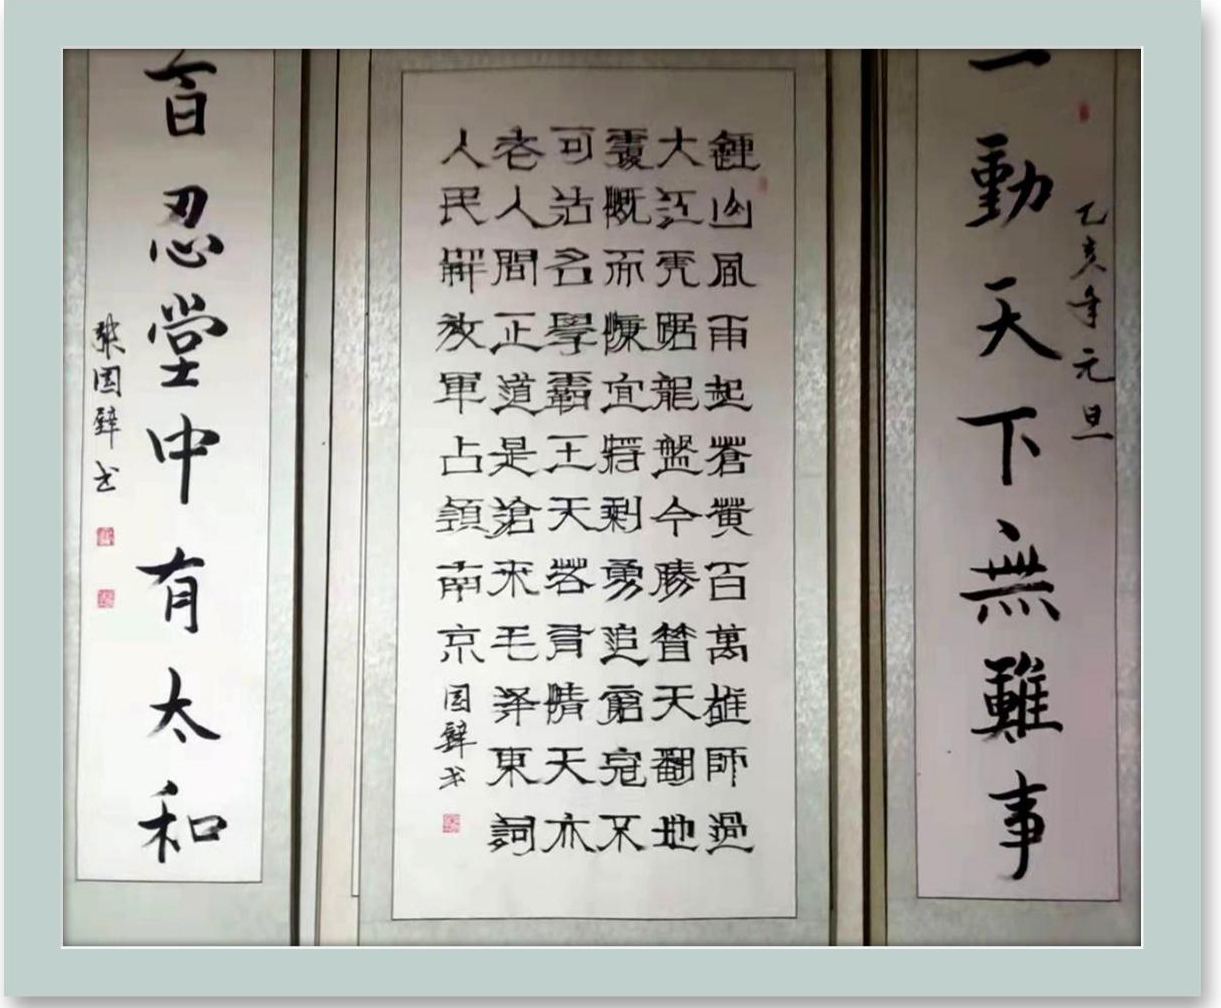 乙亥年元旦
一動天下無難事
鍾山風雨起蒼黃百萬雄師過
大江虎踞龍盤今勝昔天翻地
覆慨而慷宜將剩勇追窮寇不
可沽名學霸王天若有情天亦
老人間正道是滄桑毛澤東詞
人民解放軍占領南京 国璧书
百忍堂中有太和
張国璧书